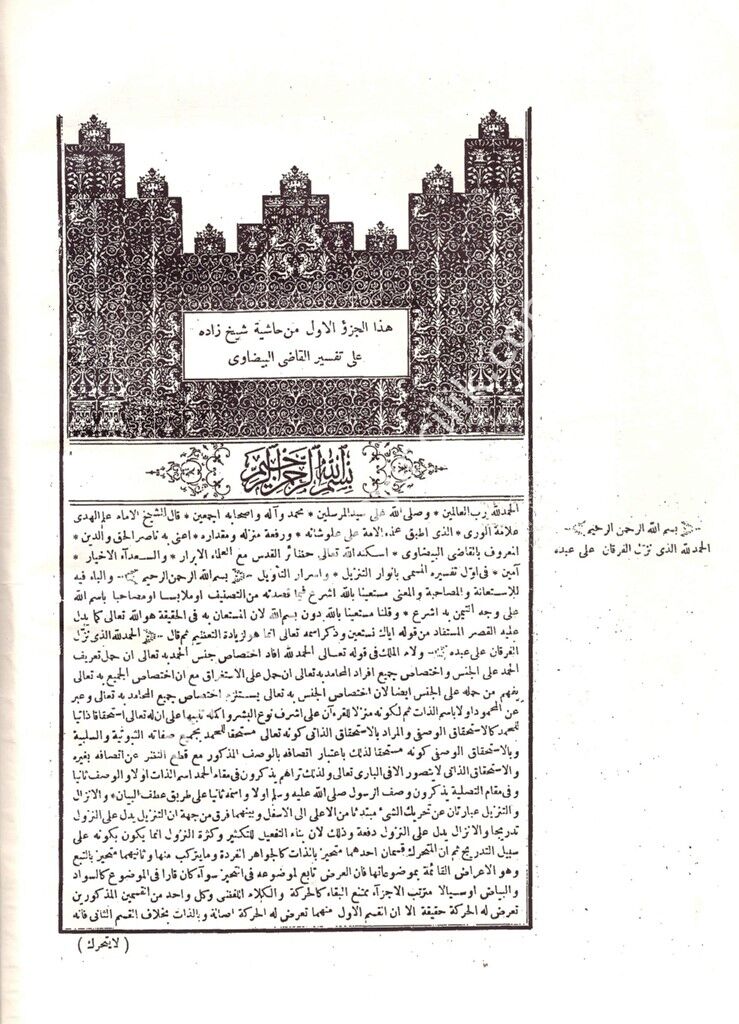 هذا الجزؤ الاول من حاشية شيخ زاده
على تفسير القاضى البيضاوى
بسم الله الرحمن الرحيم
الحمد لله رب العالمين * وصلى الله على سيد المرسلين * محمد وآله واصحابه اجمعين * قال الشيخ الامام علم الهدى
علامة الورى * الذى اطبق عمدة الامة على علو شانه * ورفعة منزله ومقداره * اعنى به ناصر الحق والدين *
المعروف بالقاضى البيضاوى * اسكنه الله تعالى حظائر القدس مع العلماء الابرار * والسعدآء الاخيار *
آمين * فى اول تفسيره المسمى بانوار التنزيل * واسرار التأويل بسم الله الرحمن الرحيم والباء فيه
للاستعانة والمصاحبة والمعنى مستعينا بالله اشرع فيما قصدته من التصنيف او ملابسا او مصاحبا باسم الله
على وجه التيمن به اشرع * وقلنا مستعينا بالله دون بسم الله لان المستعان به فى الحقيقة هو الله تعالى كما يدل
عليه القصر المستفاد من قوله اياك نستعين وذكر اسمه تعالى انما هو لزيادة التعظيم ثم قال الحمد لله الذى نزل
الفرقان على عبده ولام الملك فى قوله تعالى الحمد لله افاد اختصاص جنس الحمد به تعالى ان حمل تعريف
الحمد على الجنس واختصاص جميع افراد المحامد به تعالى ان حمل على الاستغراق مع ان اختصاص الجميع به تعالى
يفهم من حمله على الجنس ايضا لان اختصاص الجنس به تعالى يستلزم اختصاص جميع المحامد به تعالى وعبر
عن المحمود اولا باسم الذات ثم لكونه منزلا للقرءآن على اشرف نوع البشر واكمله تنبيها على ان له تعالى استحقاقا ذاتيا
للحمد كالاستحقاق الوصفى والمراد بالاستحقاق الذاتى كونه تعالى مستحقا للحمد بجميع صفاته الثبوتية والسلبية
وبالاستحقاق الوصفى كونه مستحقا لذلك باعتبار اتصافه بالوصف المذكور مع قطع النظر عن اتصافه بغيره
والاستحقاق الذاتى لا يتصور الا فى البارى تعالى ولذلك تراهم يذكرون فى مقام الحمد اسم الذات اولا والوصف ثانيا
وفى مقام التصلية يذكرون وصف الرسول صلى الله عليه وسلم اولا واسمه ثانيا على طريق عطف البيان * والانزال
والتنزيل عبارتان عن تحريك الشئ مبتدئا من الاعلى الى الاسفل وبينهما فرق من جهة ان التنزيل يدل على النزول
تدريجا والانزال يدل على النزول دفعة وذلك لان بناء التفعيل للتكثير وكثرة النزول انما يكون بكونه على
سبيل التدريج ثم ان المتحرك قسمان احدهما متحيز بالذات كالجواهر الفردة وما يتركب منها وثانيهما متحيز بالتبع
وهو الاعراض القائمة بموضوعاتها فان العرض تابع لموضوعه فى التحيز سوآء كان قارا فى الموضوع كالسواد
والبياض او سيالا مترتب الاجزآء ممتنع البقاء كالحركة والكلام اللفظى وكل واحد من القسمين المذكورين
تعرض له الحركة حقيقة الا ان القسم الاول منهما تعرض له الحركة اصالة وبالذات بخلاف القسم الثانى فانه
( لا يتحرك )
بسم الله الرحمن الرحيم
الحمد لله الذى نزل الفرقان على عبده